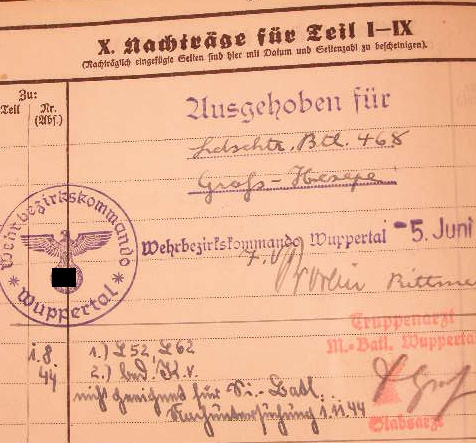 X. Nachträge für Teil I–IX
(Nachträglich eingefügte Seiten sind hier mit Datum und Seitenzahl zu bescheinigen).
Zu:
Teil Nr. (Abs.)
Ausgehoben für
Ldschtz. Btl. 468
Groß-Hesepe
Wehrbezirkskommando Wuppertal -5. Juni
Wehrbezirkskommando
* Wuppertal *
Rittme
Truppenarzt
M.-Batl. Wupperta
1.8. 1.) L 52, L 62
44 2.) bed. K.v.
nicht geeignet für Si.-Batl.
Nachuntersuchung 1.11.44
Stabsarzt